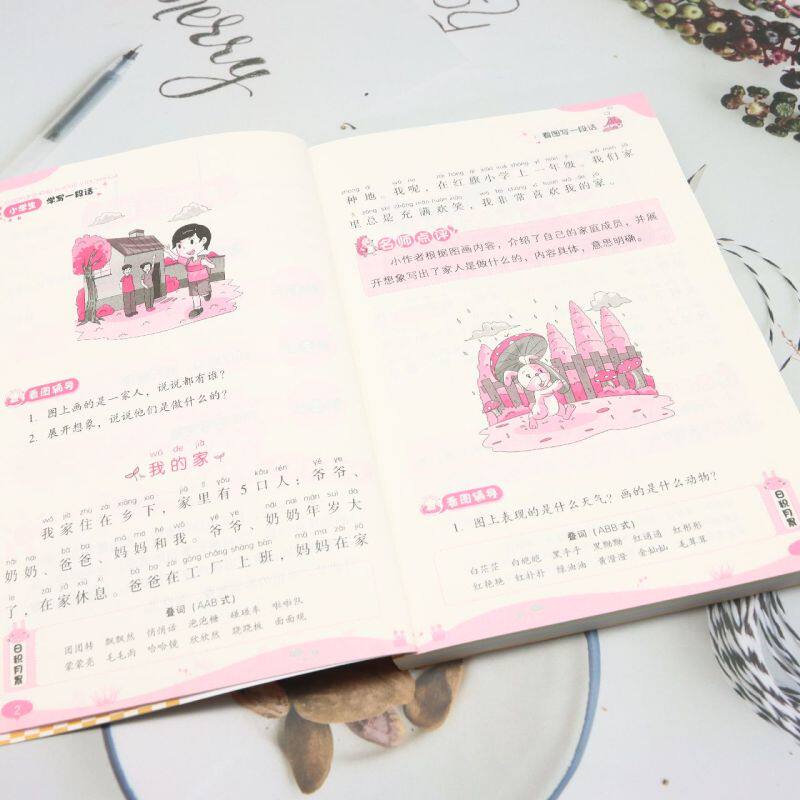 Merry
小学生 学写一段话
看图辅导
1. 图上画的是一家人，说说都有谁？
2. 展开想象，说说他们是做什么的？
wǒ de jiā
我的家
wǒ jiā zhù zài xiāng xia jiā lǐ yǒu kǒu rén yé ye
我家住在乡下，家里有5口人：爷爷、
nǎi nai bà ba mā ma hé wǒ yé ye nǎi nai nián suì dà
奶奶、爸爸、妈妈和我。爷爷、奶奶年岁大
le zài jiā xiū xi bà ba zài gōng chǎng shàng bān mā ma zài jiā
了，在家休息。爸爸在工厂上班，妈妈在家
日积月累
叠词（AAB式）
团团转 飘飘然 悄悄话 泡泡糖 碰碰车 啦啦队
蒙蒙亮 毛毛雨 哈哈镜 欣欣然 跷跷板 面面观
2
看图写一段话
zhòng dì wǒ ne zài hóng qí xiǎo xué shàng yī nián jí wǒ men jiā
种地。我呢，在红旗小学上一年级。我们家
lǐ zǒng shì chōng mǎn huān xiào wǒ fēi cháng xǐ huan wǒ de jiā
里总是充满欢笑，我非常喜欢我的家。
名师点评
小作者根据图画内容，介绍了自己的家庭成员，并展
开想象写出了家人是做什么的，内容具体，意思明确。
看图辅导
1. 图上表现的是什么天气？画的是什么动物？
日积月累
叠词（ABB式）
白茫茫 白皑皑 黑乎乎 黑黝黝 红通通 红彤彤
红艳艳 红扑扑 绿油油 黄澄澄 金灿灿 毛茸茸